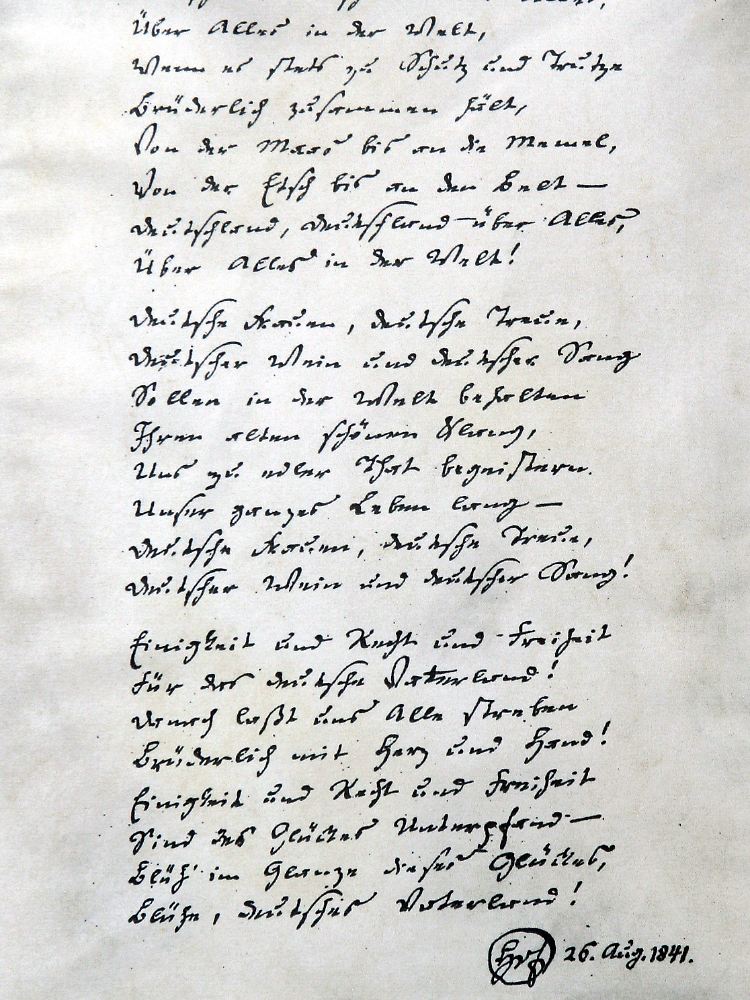 Über Alles in der Welt,
Wenn es stets zu Schutz und Trutze
Brüderlich zusammen hält,
Von der Maas bis an die Memel,
Von der Etsch bis an den Belt —
Deutschland, Deutschland über Alles,
Über Alles in der Welt!
Deutsche Frauen, deutsche Treue,
Deutscher Wein und deutscher Sang
Sollen in der Welt behalten
Ihren alten schönen Klang,
Uns zu edler That begeistern
Unser ganzes Leben lang —
Deutsche Frauen, deutsche Treue,
Deutscher Wein und deutscher Sang!
Einigkeit und Recht und Freiheit
Für das deutsche Vaterland!
Danach laßt uns Alle streben
Brüderlich mit Herz und Hand!
Einigkeit und Recht und Freiheit
Sind des Glückes Unterpfand —
Blüh' im Glanze dieses Glückes,
Blühe, deutsches Vaterland!
HvF 26. Aug. 1841.